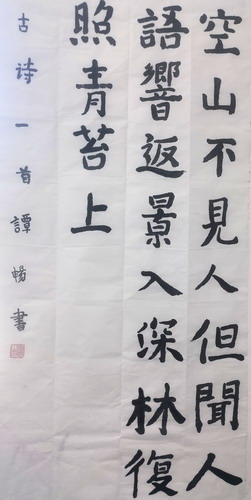 空山不見人但聞人
語響返景入深林復
照青苔上
古诗一首譚暢書